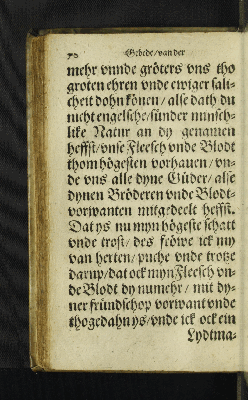 70 Gebede / van der
mehr vnnde gröters vns tho
groten ehren vnde ewiger sali-
cheit dohn könen / alse dath du
nicht engelsche / sünder minsch-
like Natur an dy genamen
heffst / vnse Fleesch vnde Blodt
thom högesten vorhauen / vn-
de vns alle dyne Güder / alse
dynen Bröderen vnde Blodt-
vorwanten mitgedeelt heffst.
Dat ys nu myn högeste schatt
vnde trost / des fröwe ick my
van herten / puche vnde trotze
darup / dat ock myn Fleesch vn-
de Blodt dy numehr / mit dy-
ner fründschop vorwant vnde
thogedahn ys / vnde ick ock ein
Lydtma-